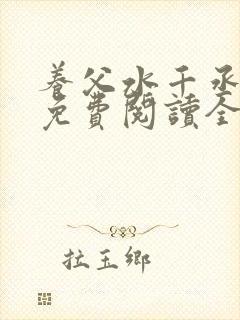 養父水千丞
免費閱讀全
拉玉鄉